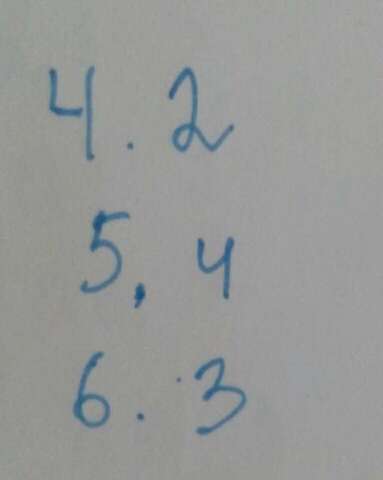 4. 2
5, 4
6. 3